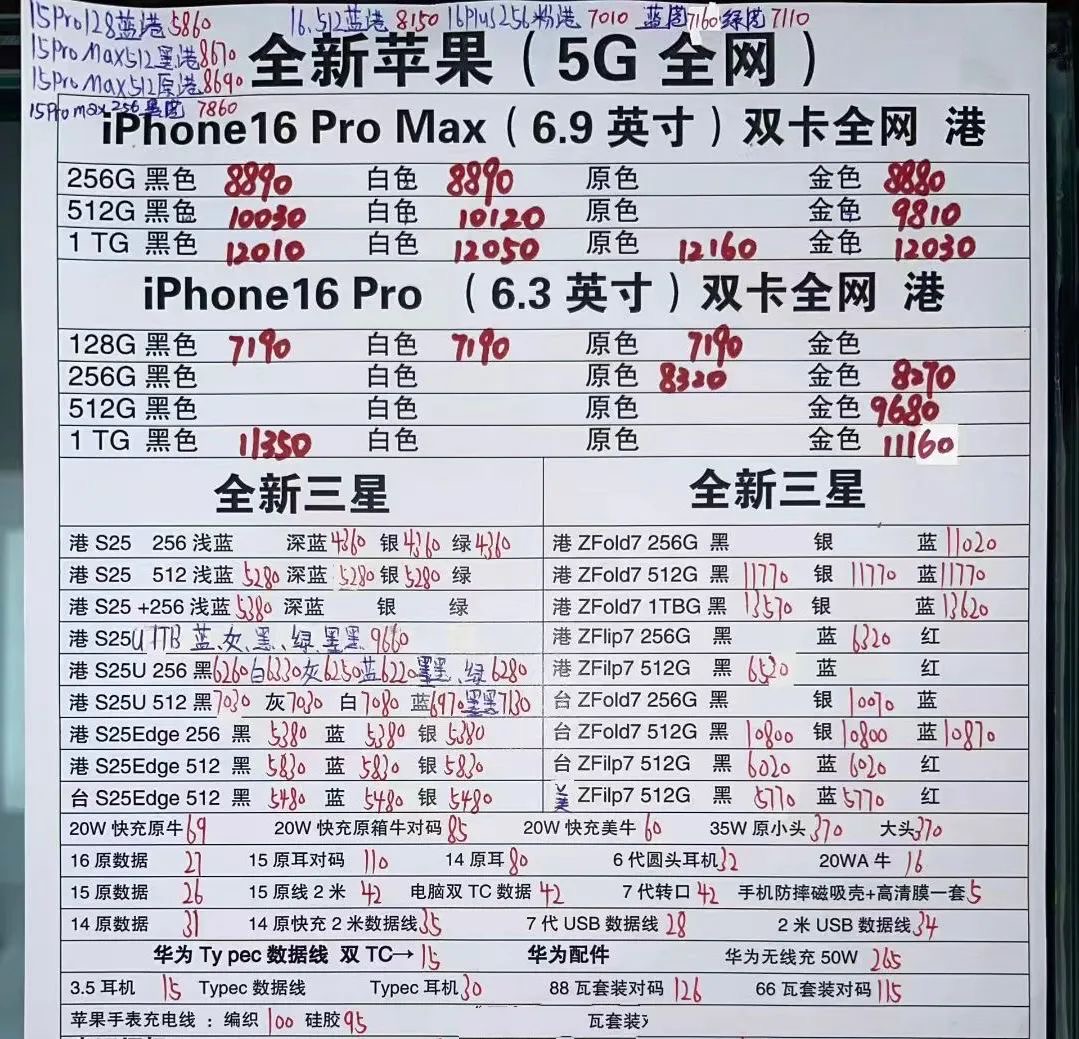 15Pro128蓝港5860 16.512蓝港8150 16Plus256粉港7010 蓝国7160绿国7110
15Pro Max512黑港8670
15Pro Max512原港8690
15Pro max 256黑国 7860
全新苹果（5G 全网）
iPhone16 Pro Max（6.9 英寸）双卡全网 港
256G 黑色 8890 白色 8890 原色 金色 8880
512G 黑色 10030 白色 10120 原色 金色 9810
1 TG 黑色 12010 白色 12050 原色 12160 金色 12030
iPhone16 Pro （6.3 英寸）双卡全网 港
128G 黑色 7190 白色 7190 原色 7190 金色
256G 黑色 白色 原色 8320 金色 8270
512G 黑色 白色 原色 金色 9680
1 TG 黑色 11350 白色 原色 金色 11160
全新三星 全新三星
港 S25 256 浅蓝 深蓝4360 银4360 绿4360 港 ZFold7 256G 黑 银 蓝11020
港 S25 512 浅蓝5280 深蓝5280 银5280 绿 港 ZFold7 512G 黑11770 银11770 蓝11770
港 S25 +256 浅蓝5380 深蓝 银 绿 港 ZFold7 1TBG 黑13570 银 蓝13620
港 S25U 1TB 蓝、灰、黑、绿 墨黑 9660 港 ZFlip7 256G 黑 蓝 6320 红
港 S25U 256 黑6260白6330灰6250蓝6220墨黑、绿6280 港 ZFilp7 512G 黑 6520 蓝 红
港 S25U 512 黑7030 灰7030 白7080 蓝6970墨黑7130 台 ZFold7 256G 黑 银 10070 蓝
港 S25Edge 256 黑 5380 蓝 5380 银5380 台 ZFold7 512G 黑10800 银10800 蓝10870
港 S25Edge 512 黑 5830 蓝 5830 银5830 台 ZFilp7 512G 黑 6020 蓝 6020 红
台 S25Edge 512 黑 5480 蓝 5480 银5480 美 ZFilp7 512G 黑 5770 蓝5770 红
20W 快充原牛69 20W 快充原箱牛对码85 20W 快充美牛60 35W 原小头370 大头370
16 原数据 27 15 原耳对码 110 14 原耳80 6 代圆头耳机32 20WA 牛 16
15 原数据 26 15 原线 2 米 42 电脑双 TC 数据42 7 代转口42 手机防摔磁吸壳+高清膜一套5
14 原数据 31 14 原快充 2 米数据线35 7 代 USB 数据线28 2 米 USB 数据线34
华为 Ty pec 数据线 双 TC→15 华为配件 华为无线充 50W 265
3.5 耳机 15 Typec 数据线 Typec 耳机30 88 瓦套装对码 126 66 瓦套装对码115
苹果手表充电线 ：编织 100 硅胶95 瓦套装